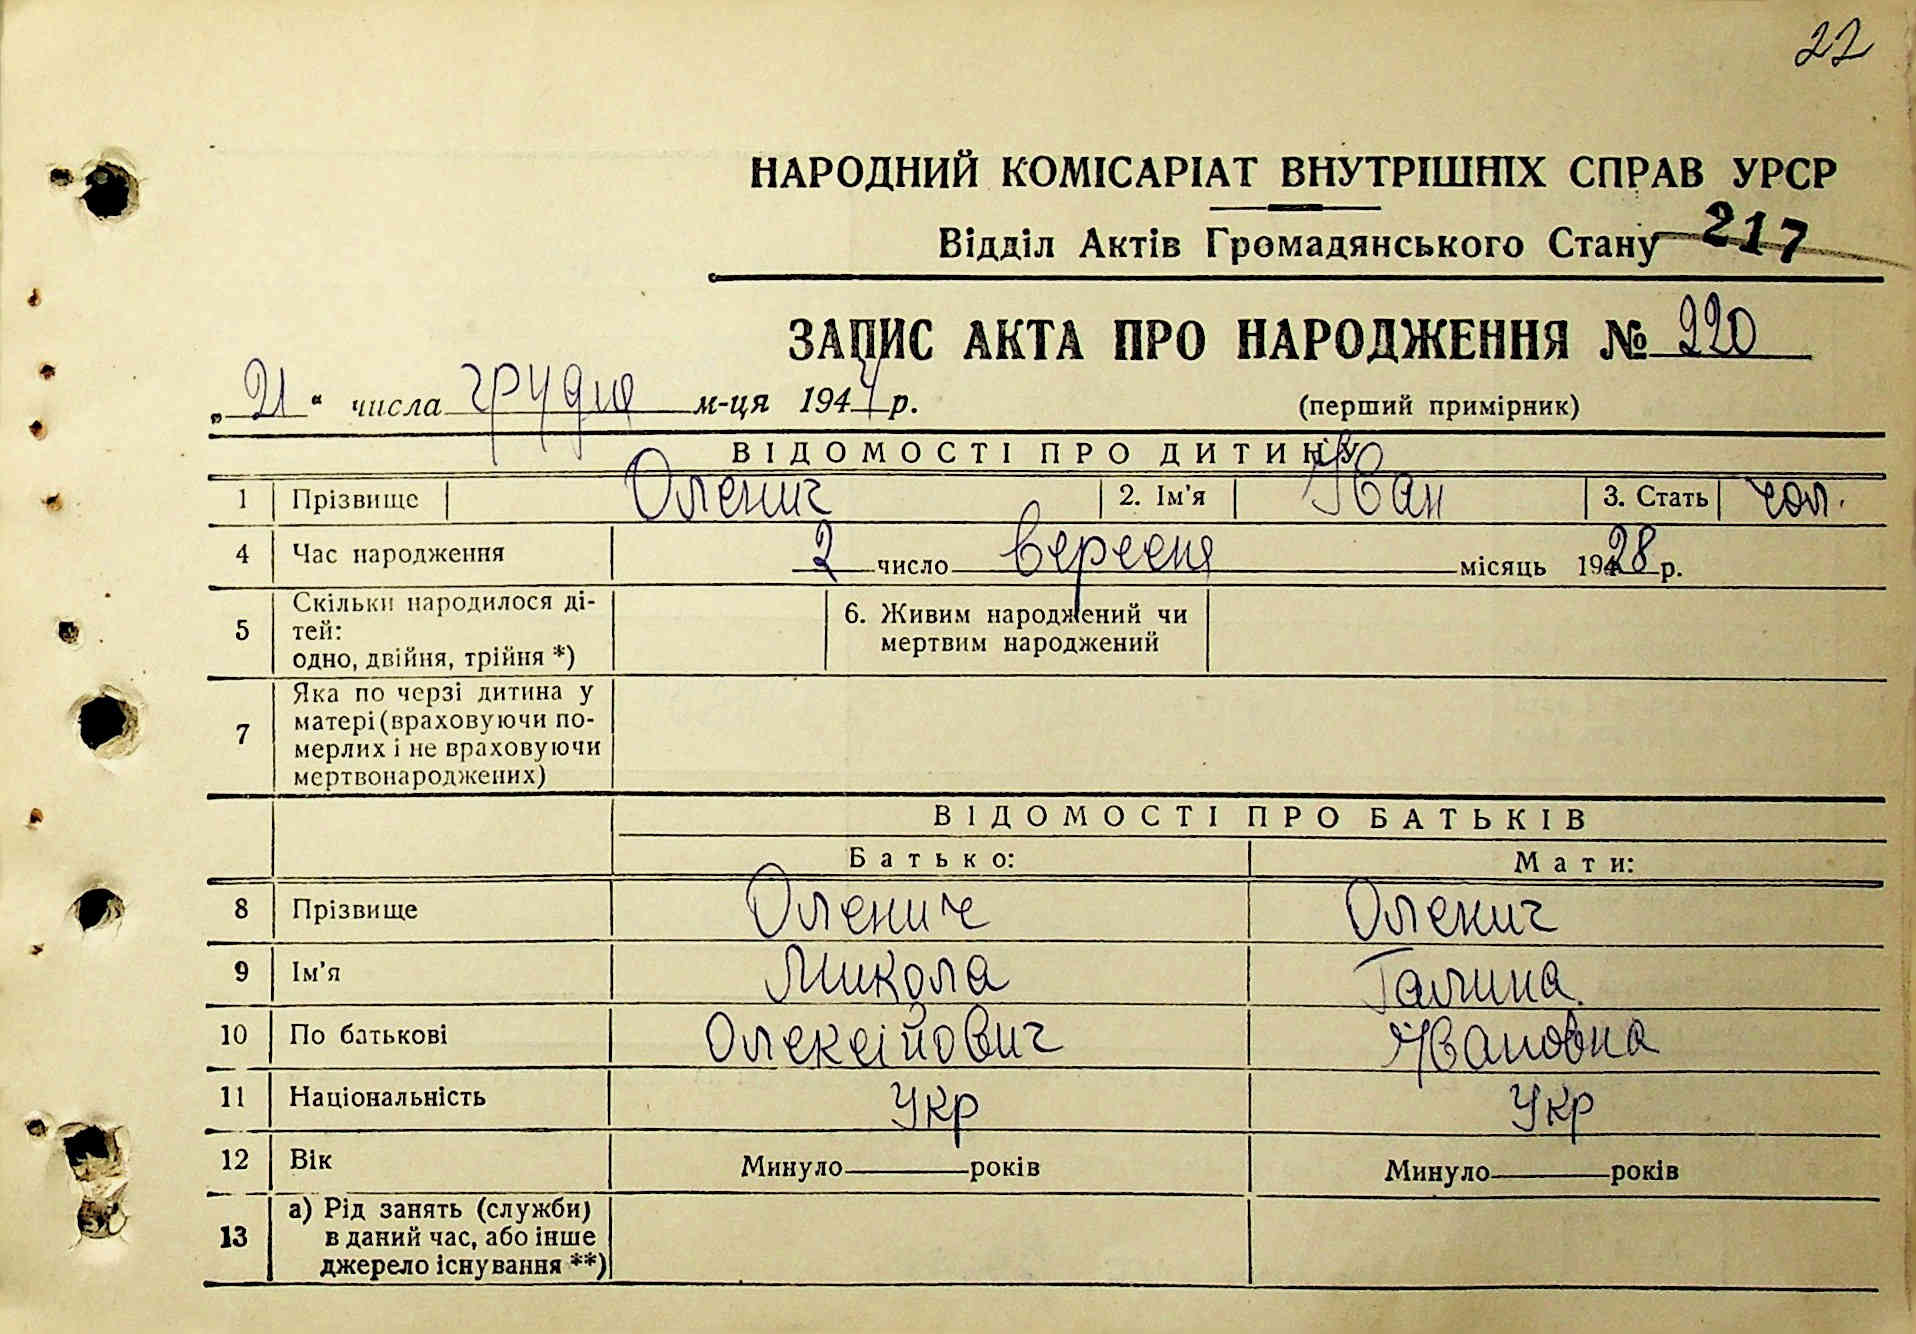 22
НАРОДНИЙ КОМІСАРІАТ ВНУТРІШНІХ СПРАВ УРСР
Відділ Актів Громадянського Стану 217
ЗАПИС АКТА ПРО НАРОДЖЕННЯ № 220
„ 21 “ числа грудня м-ця 1944 р. (перший примірник)
ВІДОМОСТІ ПРО ДИТИНУ
1 Прізвище Оленич 2. Ім'я Іван 3. Стать чол.
4 Час народження 2 число вересня місяць 1928 р.
5 Скільки народилося ді-
тей:
одно, двійня, трійня *)
6. Живим народжений чи
мертвим народжений
7 Яка по черзі дитина у
матері (враховуючи по-
мерлих і не враховуючи
мертвонароджених)
ВІДОМОСТІ ПРО БАТЬКІВ
Батько: Мати:
8 Прізвище Оленич Оленич
9 Ім'я Микола Галина
10 По батькові Олексійович Івановна
11 Національність Укр Укр
12 Вік Минуло років Минуло років
13 а) Рід занять (служби)
в даний час, або інше
джерело існування **)